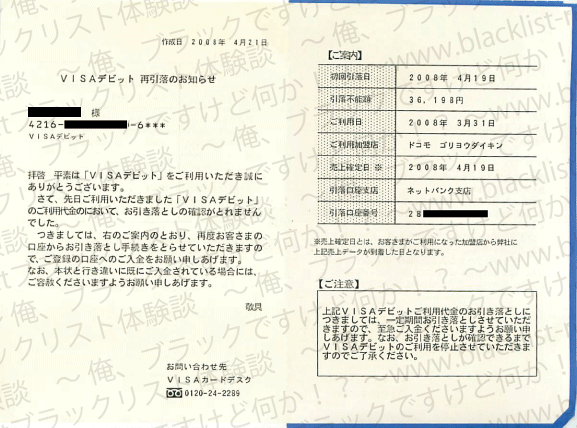 作成日 2008年 4月21日
VISAデビット 再引落のお知らせ
様
4216-
-6***
VISAデビット
拝啓 平素は「VISAデビット」をご利用いただき誠に
ありがとうございます。
さて、先日ご利用いただきました「VISAデビット」
のご利用代金のにおいて、お引き落としの確認がとれません
でした。
つきましては、右のご案内のとおり、再度お客さまの
口座からお引き落とし手続きをとらせていただきますの
で、ご登録の口座へのご入金をお願い申しあげます。
なお、本状と行き違いに既にご入金されている場合には、
ご容赦くださいますようお願い申しあげます。
敬具
お問い合わせ先
VISAカードデスク
0120-24-2289
【ご案内】
初回引落日 2008年 4月19日
引落不能額 36,198円
ご利用日 2008年 3月31日
ご利用加盟店 ドコモ ゴリヨウダイキン
売上確定日 ※ 2008年 4月19日
引落口座支店 ネットバンク支店
引落口座番号 28
※売上確定日とは、お客さまがご利用になった加盟店から弊社に
上記売上データが到着した日となります。
【ご注意】
上記VISAデビットご利用代金のお引き落としに
つきましては、一定期間お引き落としさせていただ
きますので、至急ご入金くださいますようお願い申
しあげます。なお、お引き落としが確認できるまで
VISAデビットのご利用を停止させていただきま
すのでご了承ください。
～俺、ブラックリスト体験談
～俺、ブラックですけど何か！？～
www.blacklist-